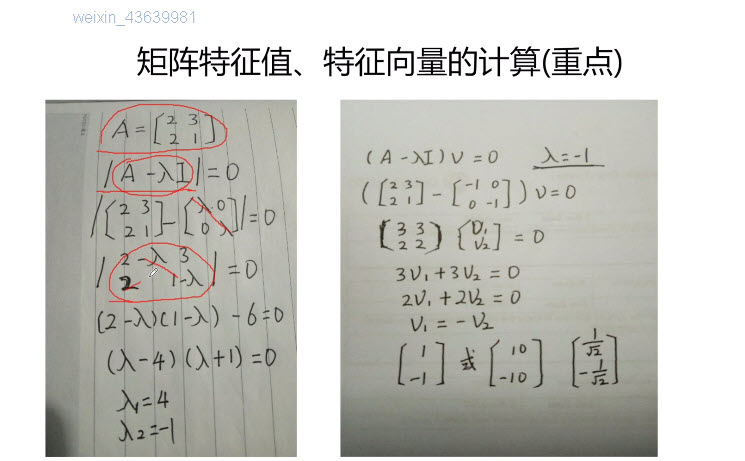 weixin_43639981
矩阵特征值、特征向量的计算(重点)
A = [2 3
2 1]
|A - λI| = 0
|[2 3
2 1] - [λ 0
0 λ]| = 0
|2-λ 3
2 1-λ| = 0
(2-λ)(1-λ) - 6 = 0
(λ-4)(λ+1) = 0
λ1 = 4
λ2 = -1
(A - λI) v = 0 λ = -1
([2 3
2 1] - [-1 0
0 -1]) v = 0
[3 3
2 2] [v1
v2] = 0
3v1 + 3v2 = 0
2v1 + 2v2 = 0
v1 = -v2
[1
-1] 或 [10
-10] [1/√2
-1/√2]